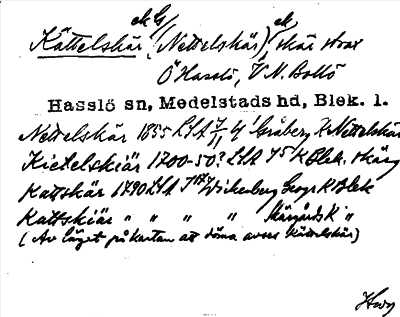 ek G ek
Kättelskär (Nettelskär), skär strax
Ö Hasslö, V N. Bollö
Hasslö sn, Medelstads hd, Blek. l.
Nettelskär 1835 LSA Gråberg K Nettelskär
Kietelskiär 1700-50? LSA K Blek. skärg
Kattskär 1790 LSA Wickenberg Geogr K Blek
Kattskiär " " " " Skärgårds K "
(Av läget på kartan att döma avses Kättelskär)